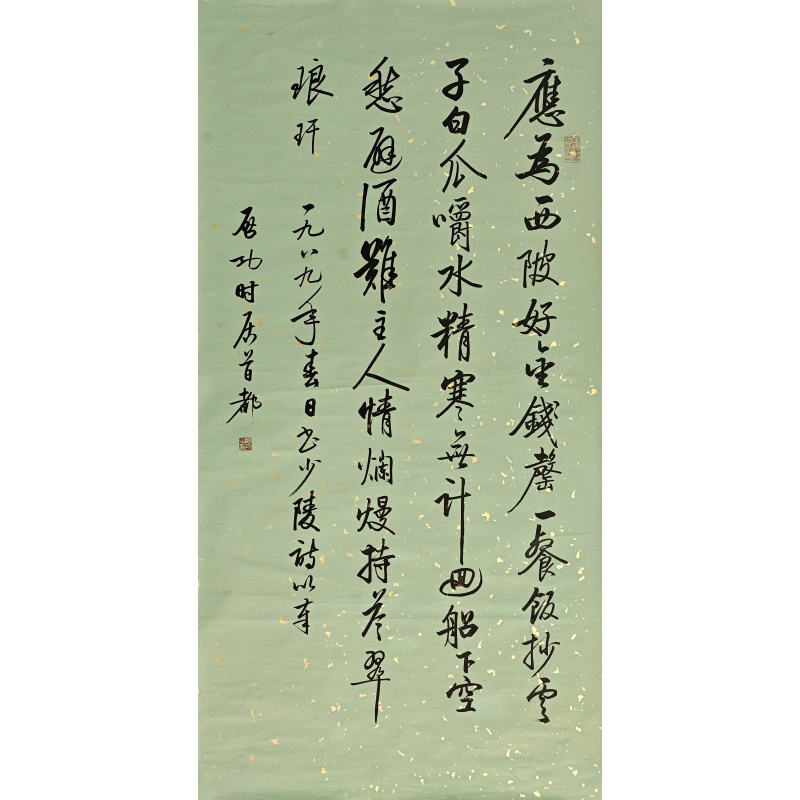 應為西陂好金錢罄一餐飯抄雲
子白瓜嚼水精寒無計迴船下空
愁避酒難主人情爛熳持答翠
琅玕 一九八九年春日书少陵詩以奉
啟功时居首都